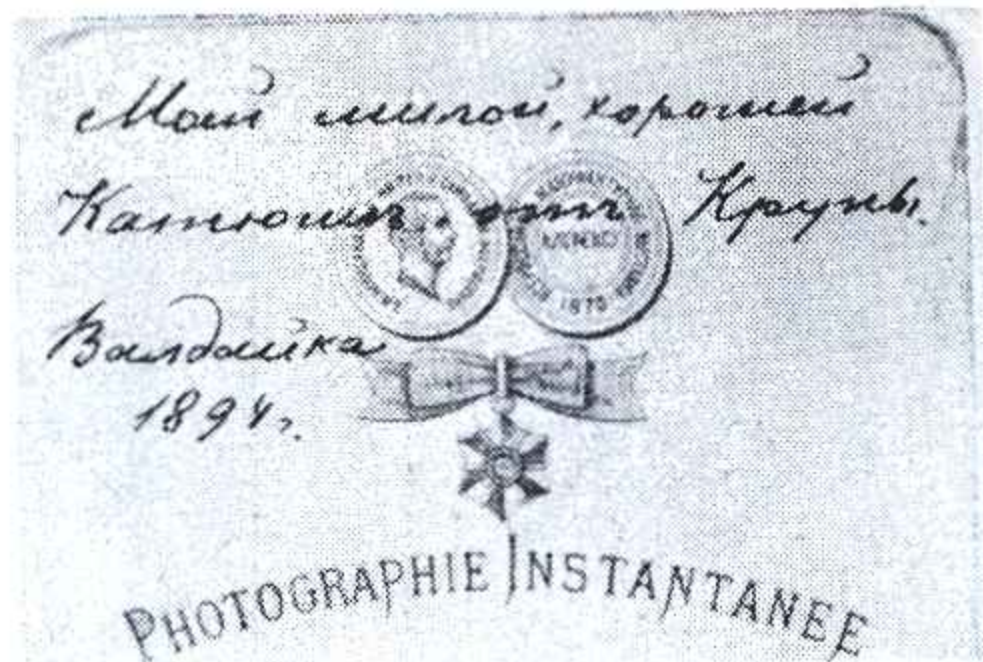 Моей милой, хорошей
Катюшѣ отъ Круны.
Валдайка
1894г.
1870
PHOTOGRAPHIE INSTANTANEE